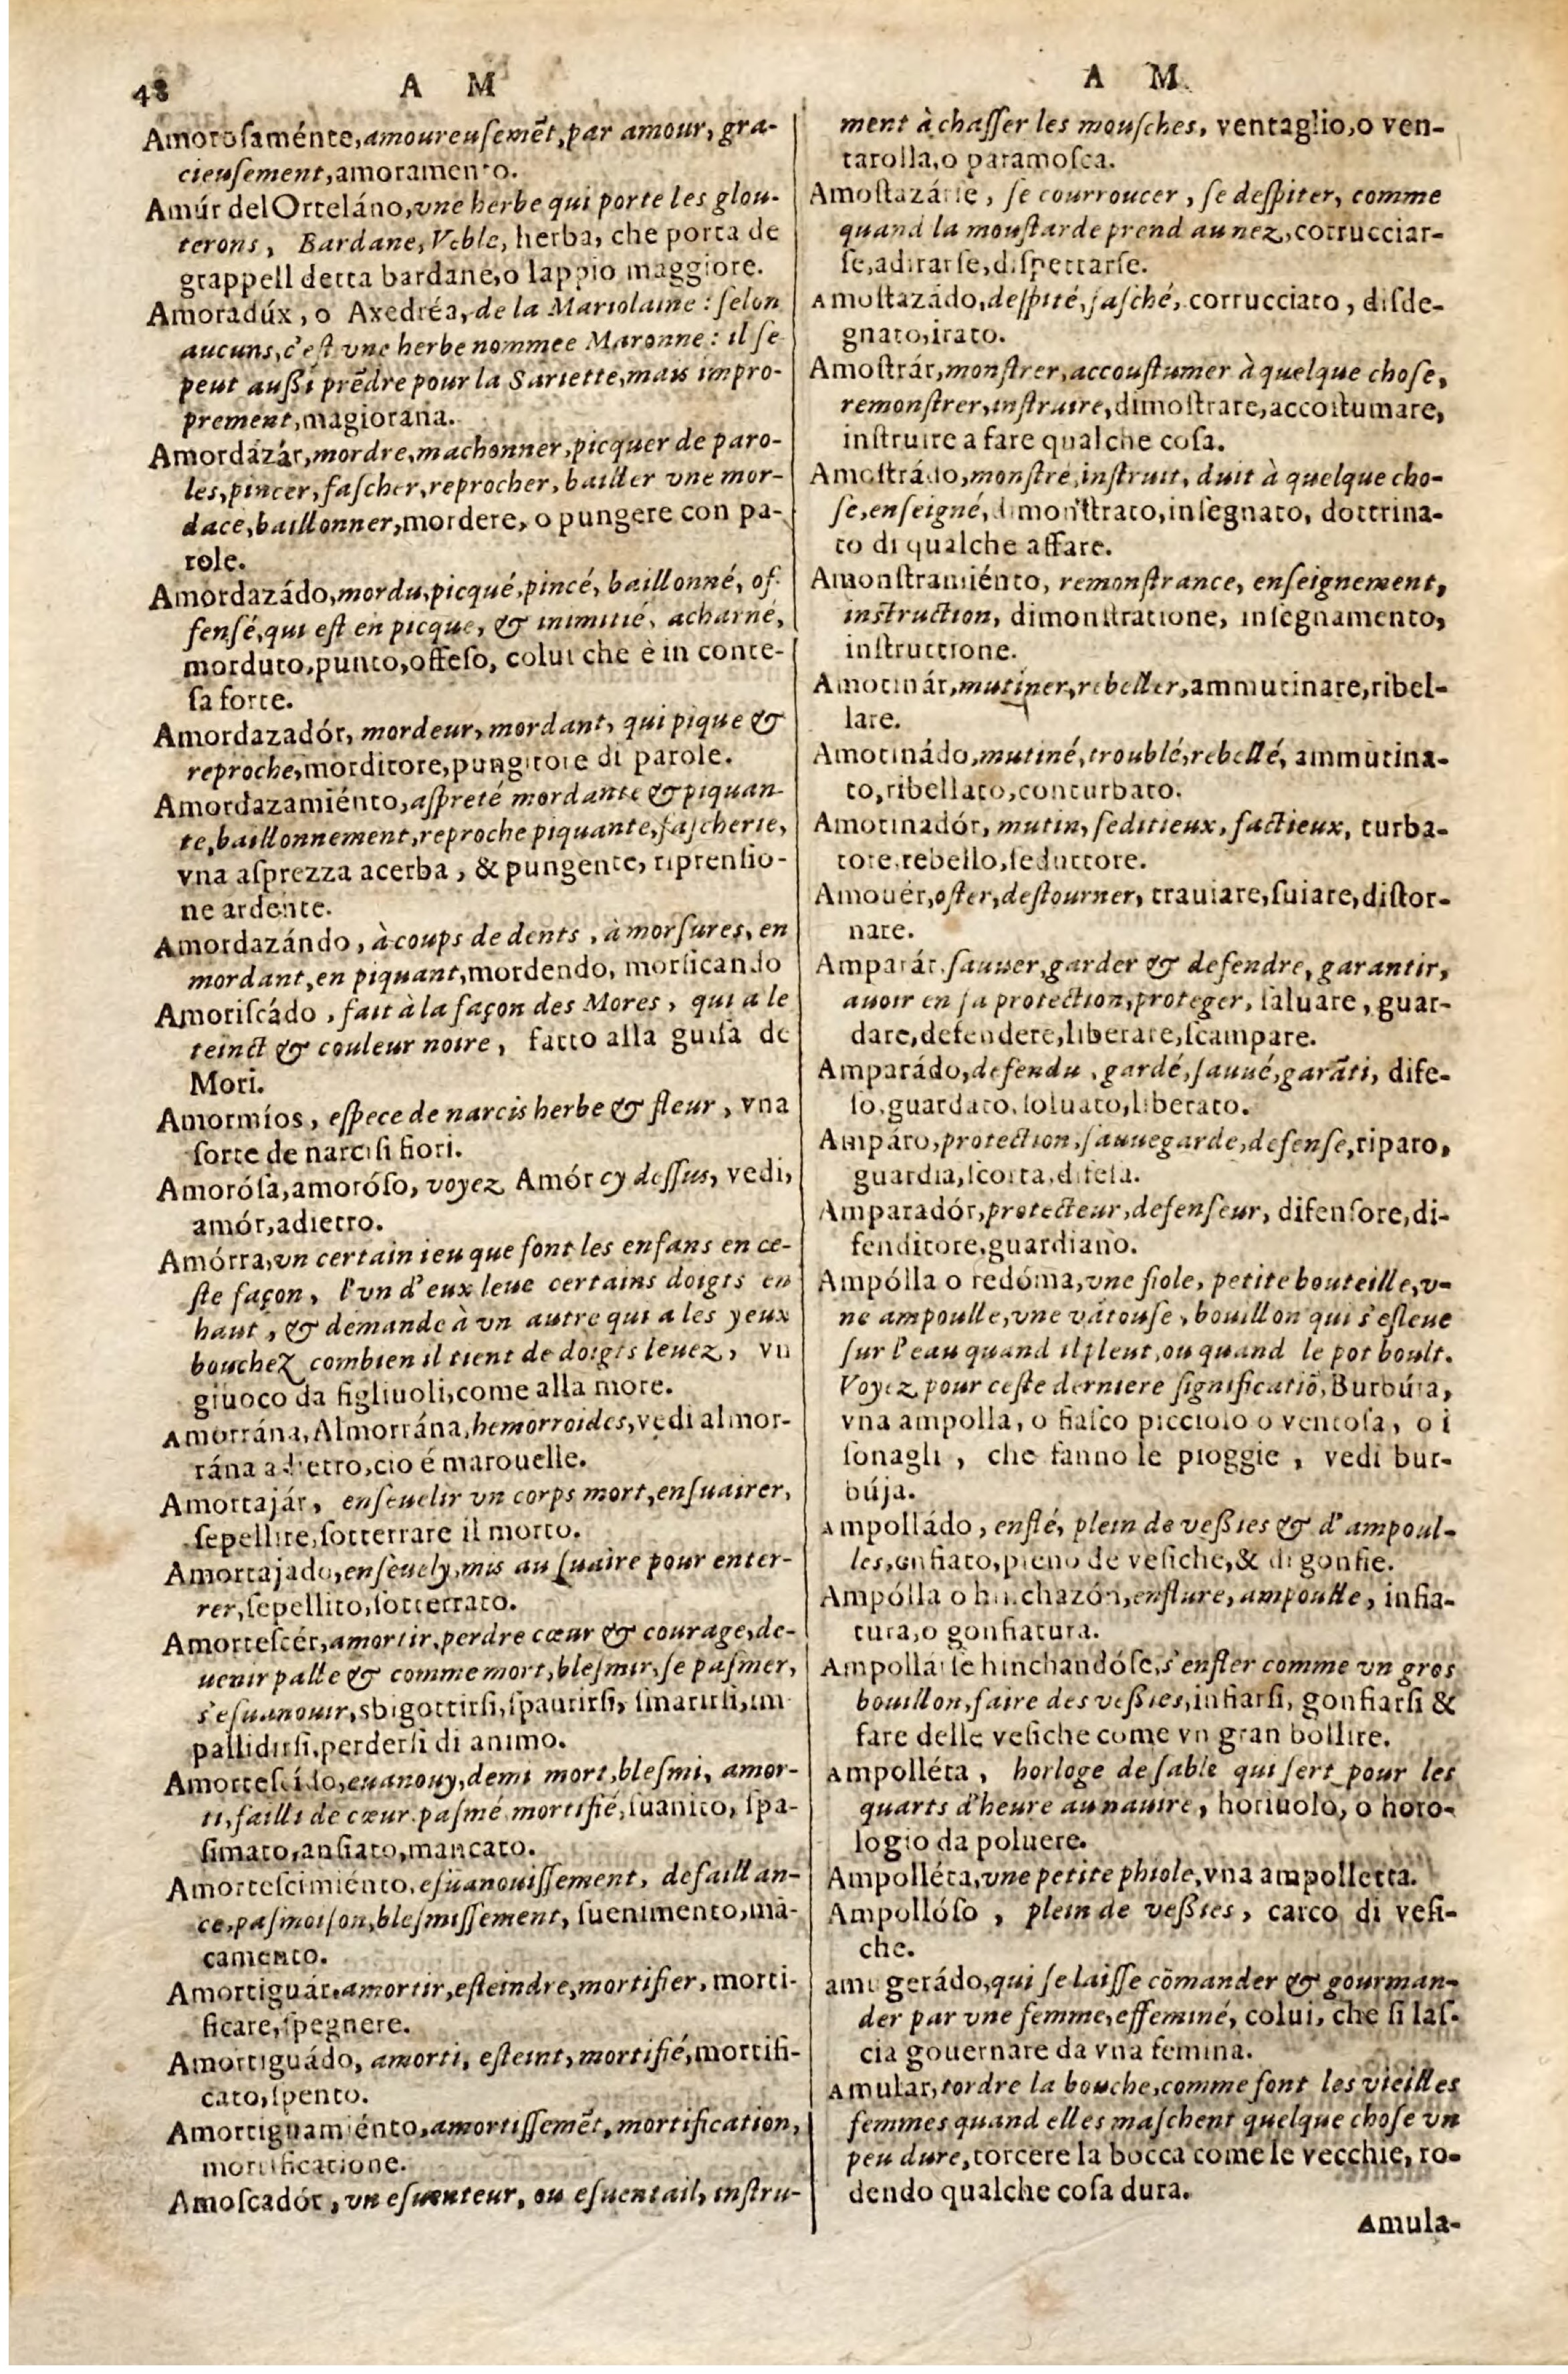 48
A M
Amorosaménte, amoureusemēt, par amour, gra-
cieusement, amoramento.
Amúr del Orteláno, vne herbe qui porte les glou-
terons, Bardane, Veble, herba, che porta de
grappell detta bardane, o lappio maggiore.
Amoradúx, o Axedréa, de la Mariolaine: selon
aucuns, c'est vne herbe nommee Maronne: il se
peut aussi prēdre pour la Sariette, mais impro-
prement, magiorana.
Amordázár, mordre, machonner, picquer de paro-
les, pincer, fascher, reprocher, bailler vne mor-
dace, baillonner, mordere, o pungere con pa-
role.
Amordazádo, mordu, picqué, pincé, baillonné, of-
fensé, qui est en picque, & inimitié, acharné,
morduto, punto, offeso, colui che è in conte-
sa forte.
Amordazadór, mordeur, mordant, qui pique &
reproche, morditore, pungitore di parole.
Amordazamiénto, aspreté mordante & piquan-
te, baillonnement, reproche piquante, fascherie,
vna asprezza acerba, & pungente, riprensio-
ne ardente.
Amordazándo, à coups de dents, à morsures, en
mordant, en piquant, mordendo, morsicando
Amoriscádo, fait à la façon des Mores, qui a le
teinct & couleur noire, fatto alla guisa de
Mori.
Amormíos, espece de narcis herbe & fleur, vna
sorte de narcisi fiori.
Amorósa, amoróso, voyez Amór cy dessus, vedi,
amór, adietro.
Amórra, vn certain ieu que font les enfans en ce-
ste façon, l'vn d'eux leue certains doigts en
haut, & demande à vn autre qui a les yeux
bouchez combien il tient de doigts leuez, vn
giuoco da figliuoli, come alla more.
Amorrána, Almorrána, hemorroides, vedi almor-
rána adietro, cio é marouelle.
Amortajár, enseuelir vn corps mort, ensuairer,
sepellire, sotterrare il morto.
Amortajado, enseuely, mis au suaire pour enter-
rer, sepellito, sotterrato.
Amortescér, amortir, perdre cœur & courage, de-
uenir palle & comme mort, blesmir, se pasmer,
s'esuanouir, sbigottirsi, spautirsi, smarirsi, im
pallidirsi, perdersi di animo.
Amortescído, euanouy, demi mort, blesmi, amor-
ti, failli de cœur, pasmé, mortifié, suanito, spa-
simato, ansiato, mancato.
Amortescimiénto, esuanouissement, defaillan-
ce, pasmoison, blesmissement, suenimento, mā-
camento.
Amortiguár, amortir, esteindre, mortifier, morti-
ficare, spegnere.
Amortiguádo, amorti, esteint, mortifié, mortifi-
cato, spento.
Amortiguamiénto, amortissemēt, mortification,
mortificatione.
Amoscadór, vn esuenteur, ou esuentail, instru-
A M.
ment à chasser les mousches, ventaglio, o ven-
tarolla, o paramosca.
Amostazárse, se courroucer, se despiter, comme
quand la moustarde prend au nez, corrucciar-
se, adirarse, dispettarse.
Amostazádo, despité, fasché, corrucciato, disde-
gnato, irato.
Amostrár, monstrer, accoustumer à quelque chose,
remonstrer, instruire, dimostrare, accostumare,
instruire a fare qualche cosa.
Amostrádo, monstré, instruit, duit à quelque cho-
se, enseigné, dimonstrato, insegnato, dottrina-
to di qualche affare.
Amonstramiénto, remonstrance, enseignement,
instruction, dimonstratione, insegnamento,
instruttione.
Amotinár, mutiner, rebeller, ammutinare, ribel-
lare.
Amotinádo, mutiné, troublé, rebellé, ammutina-
to, ribellato, conturbato.
Amotinadór, mutin, seditieux, factieux, turba-
tore, rebello, seduttore.
Amouér, oster, destourner, trauiare, suiare, distor-
nare.
Amparár, sauuer, garder & defendre, garantir,
auoir en sa protection, proteger, saluare, guar-
dare, defendere, liberare, scampare.
Amparádo, defendu, gardé, sauué, garāti, dife-
so, guardato, soluato, liberato.
Ampáro, protection, sauuegarde, defense, riparo,
guardia, scorta, difesa.
Amparadór, protecteur, defenseur, difensore, di-
fenditore, guardiano.
Ampólla o redóma, vne fiole, petite bouteille, v-
ne ampoulle, vne vātouse, bouillon qui s'esleue
sur l'eau quand il pleut, ou quand le pot boult.
Voyez pour ceste derniere significatiō, Burbúia,
vna ampolla, o fiasco picciolo o ventosa, o i
sonagli, che fanno le pioggie, vedi bur-
búja.
Ampolládo, enflé, plein de vessies & d'ampoul-
les, enfiato, pieno de vesiche, & di gonfie.
Ampólla o hinchazón, enflure, ampoulle, infia-
tura, o gonfiatura.
Ampollárse hinchandóse, s'enfler comme vn gros
bouillon, faire des vessies, infiarsi, gonfiarsi &
fare delle vesiche come vn gran bollire.
Ampolléta, horloge de sable qui sert pour les
quarts d'heure au nauire, horiuolo, o horo-
logio da poluere.
Ampolléta, vne petite phiole, vna ampolletta.
Ampollóso, plein de vessies, carco di vesi-
che.
amugerádo, qui se laisse cōmander & gourman-
der par vne femme, effeminé, colui, che si las-
cia gouernare da vna femina.
Amular, tordre la bouche, comme font les vieilles
femmes quand elles maschent quelque chose vn
peu dure, torcere la bocca come le vecchie, ro-
dendo qualche cosa dura.
Amula-